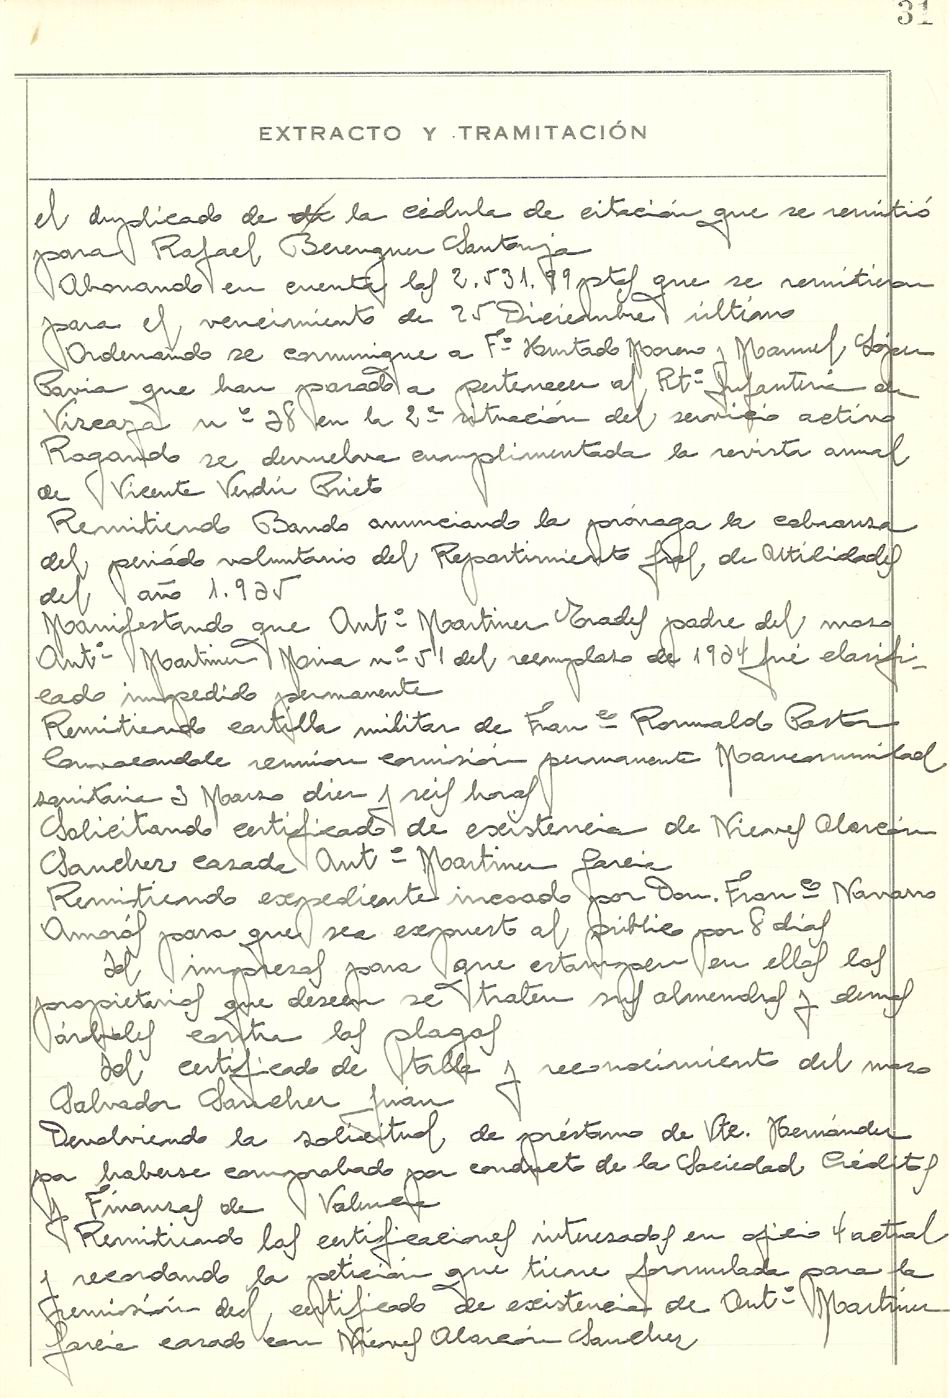 31
EXTRACTO Y TRAMITACIÓN
el duplicado de de la cédula de citación que se remitió
para Rafael Berenguer Santonja
Abonando en cuenta las 2.531.99 ptas que se remitieron
para el vencimiento de 25 Diciembre último
Ordenando se comunique a Fº Hurtado Moreno y Manuel López
Pavia que han pasado a pertenecer al Rtº Infanteria de
Vizcaya nº 38 en la 2ª situación del servicio activo
Rogando se devuelva cumplimentada la revista anual
de Vicente Verdú Prieto
Remitiendo Bando anunciando la próroga la cobranza
del periódo voluntario del Repartimiento gral, de Utilidades
del año 1.935
Manifestando que Antº Martinez Prades padre del mozo
Antº Martinez Mira nº 51 del reemplazo de 1934 fué clasifi-
cado impedido permanente
Remitiendo cartilla militar de Franco Romualdo Pastor
Convocandole reunion comisión permanente Mancomunidad
sanitaria 3 Marzo diez y seis horas
Solicitando certificado de existencia de Nieves Alarcón
Sanchez casada Antº Martinez Garcia
Remitiendo expediente incoado por Don. Franco Navarro
Amorós para que sea expuesto al público por 8 días
Id impresos para que estampen en ellos los
propietarios que deseen se traten sus almendros y demas
árboles contra las plagas
Id certificado de talla y reconocimiento del mozo
Salvador Sanchez Juan
Devolviendo la solicitud, de préstamo de Vte. Hernández
por haberse comprobado por conducto de la Sociedad Créditos
y Finanzas de Valencia
Remitiendo las certificaciones interesadas en oficio 4 actual
y recordando la petición que tiene formulada para la
remisión del, certificado de existencia de Antº Martinez
Garcia casado con Nieves Alarcón Sanchez